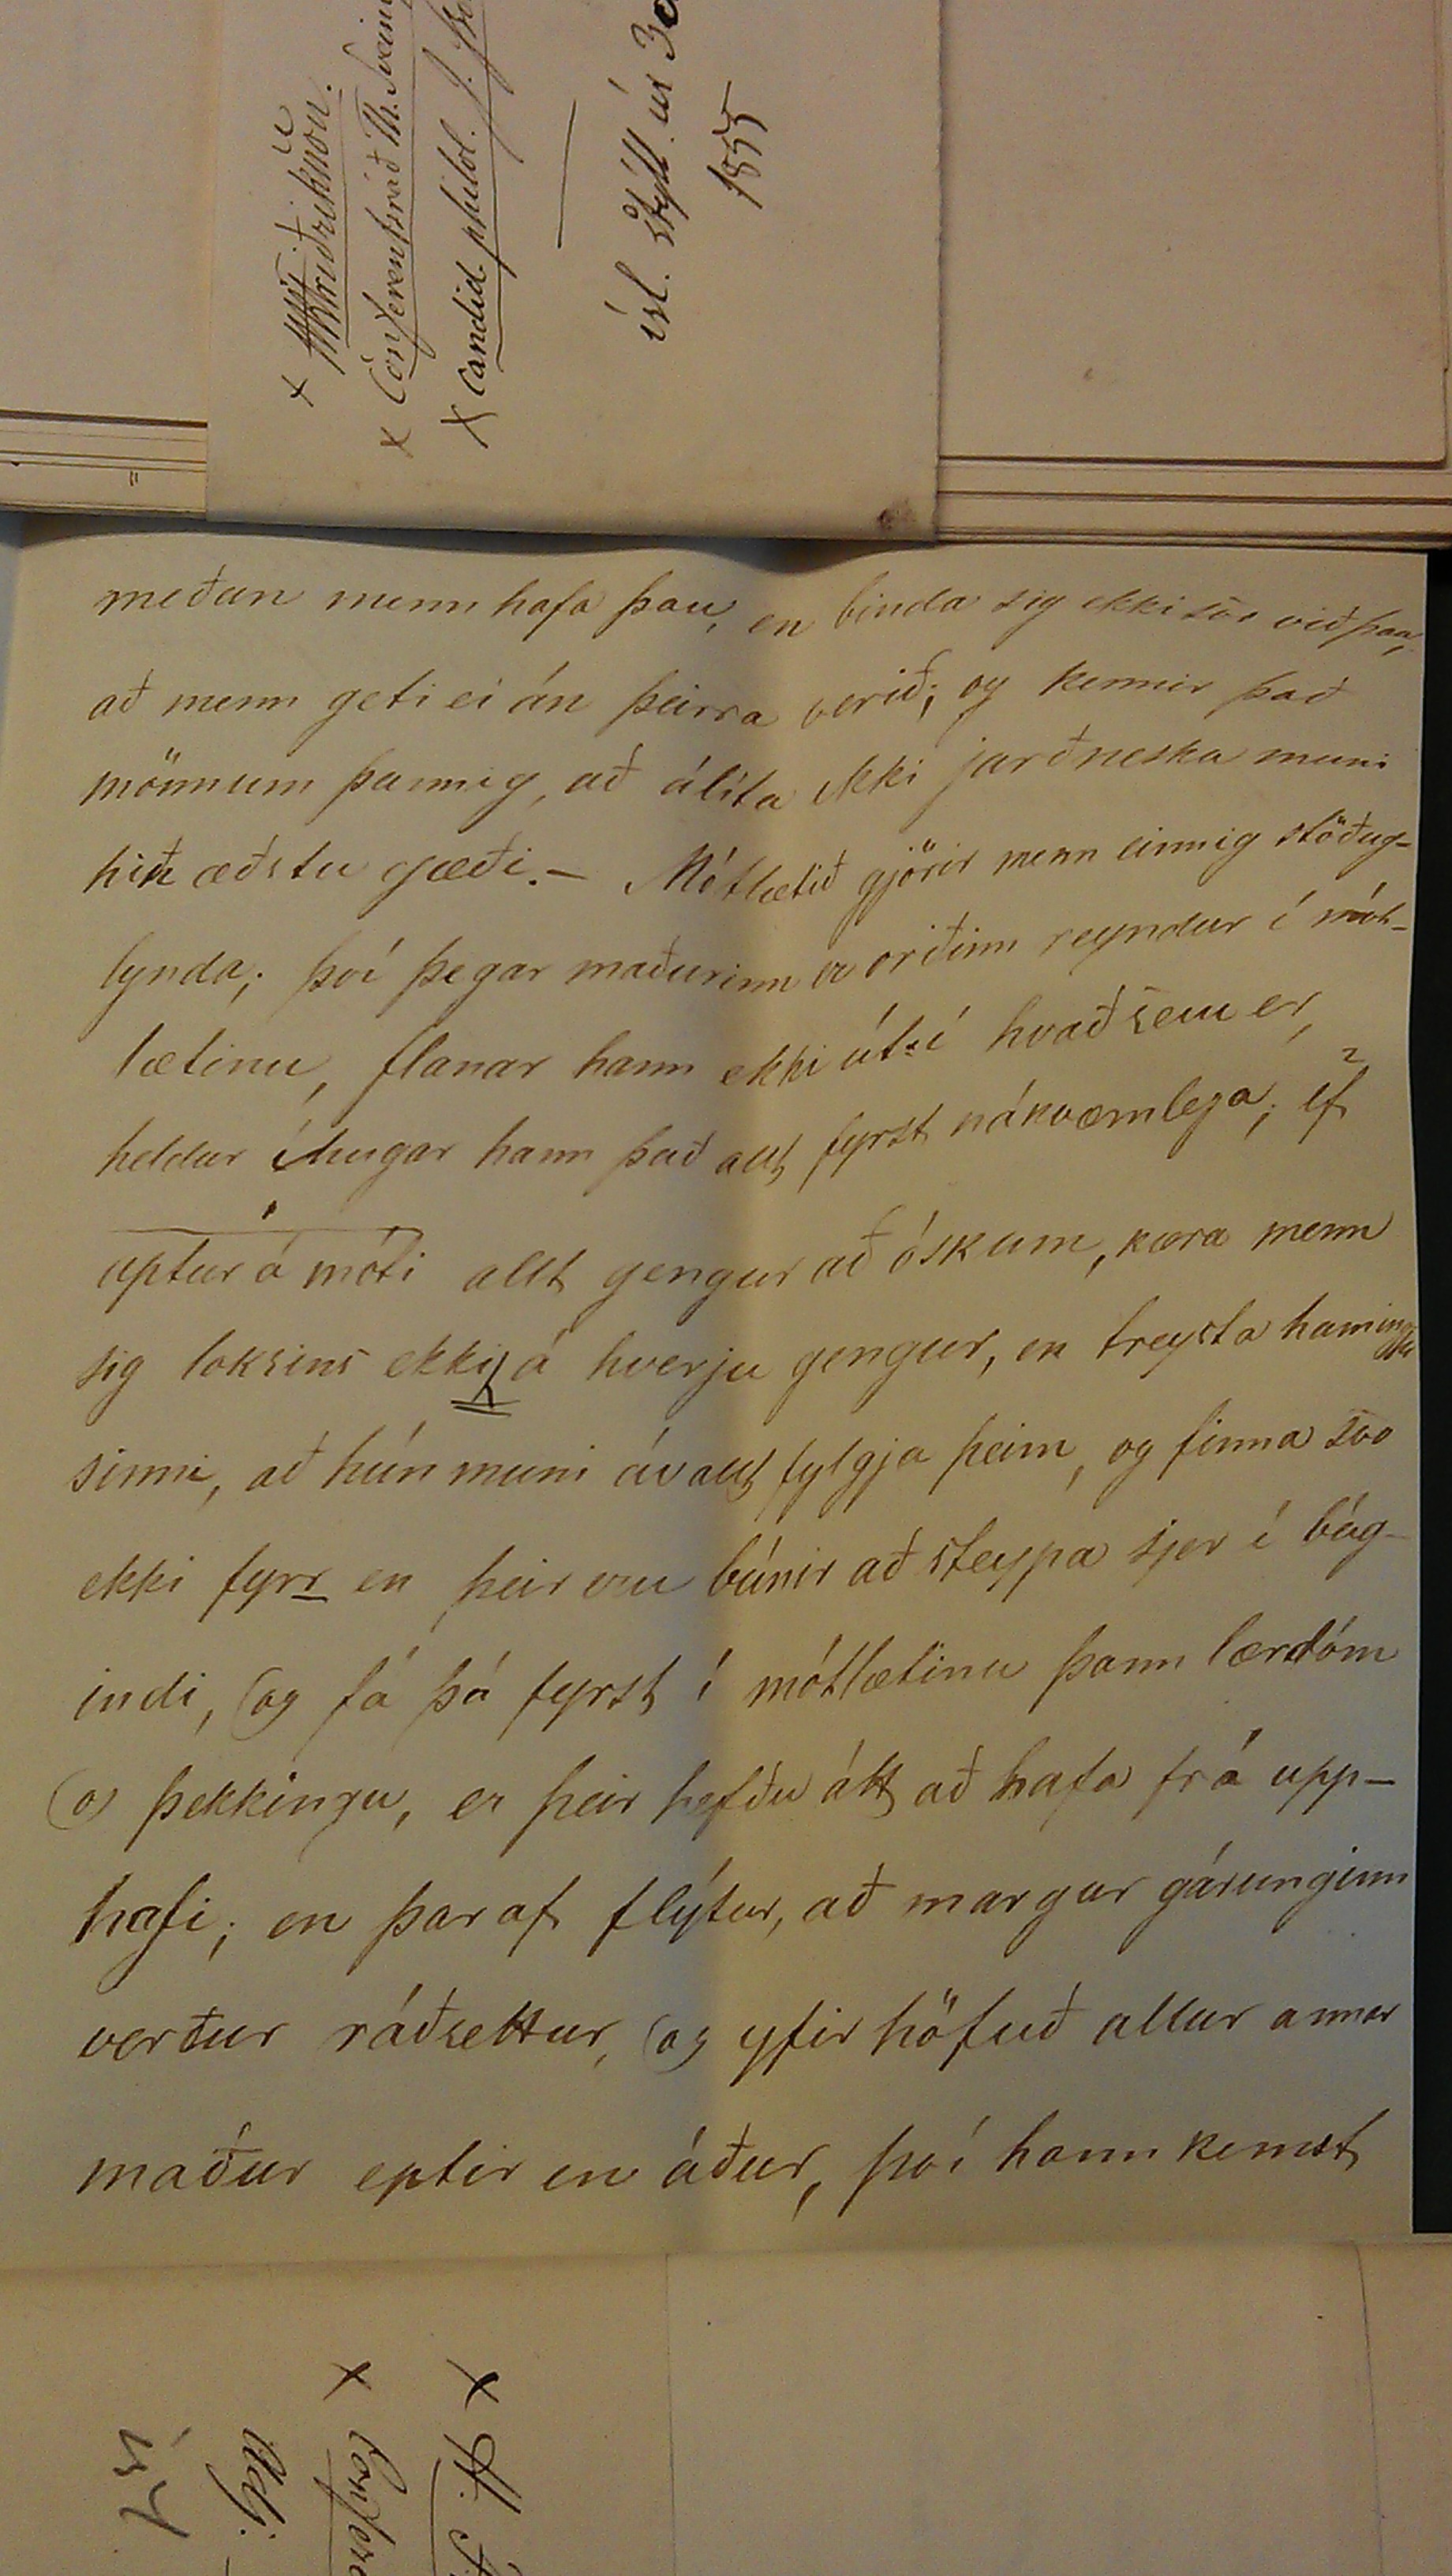 Friðriksson.
× Conferentsráð Th. Svein
× Candid. philol. J.
ísl. stýll. úr 3
1855
meðan menn hafa þau, en binda sig ekki svo við þau,
að menn geti ei án þeirra verið; og kennir það
mönnum þannig, að álíta ekki jarðneska muni
hin æðstu gæði. – Mótlætið gjörir menn einnig stöðug-
lynda; því þegar maðurinn er orðinn reyndur í mót-
lætinu, flanar hann ekki út í hvað sem er,
heldur íhugar hann það allt fyrst nákvæmlega; ef
aptur á móti allt gengur að óskum, kæra menn
sig loksins ekki á hverju gengur, en treysta hamingju
sinni, að hún muni ávallt fylgja þeim, og finna svo
ekki fyrr en þeir eru búnir að steypa sjer í bág-
indi, (og fá þá fyrst í mótlætinu þann lærdóm
(og) þekkingu, er þeir hefðu átt að hafa frá upp-
hafi; en þar af flýtur, að margur gárunginn
verður ráðsettur, (og yfir höfuð allur annar
maður eptir en áður, því hann kemst
× H.
× Confere
Adj.